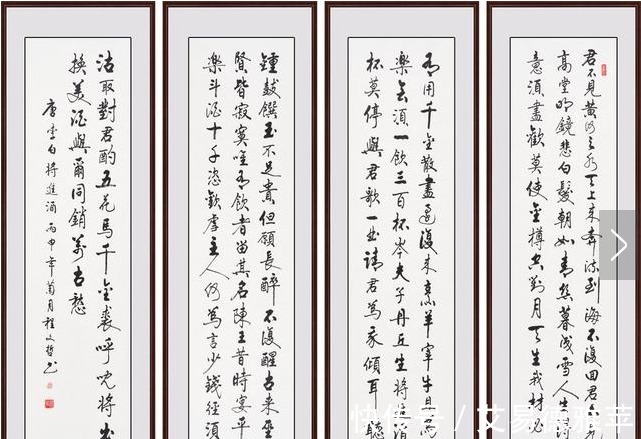 君不見黃河之水天上來奔流到海不復回君不
高堂明鏡悲白髮朝如青絲暮成雪人生
意須盡歡莫使金樽空對月天生我材必
有用千金散盡還復來烹羊宰牛且
樂會須一飲三百杯岑夫子丹丘生將
杯莫停與君歌一曲請君為我傾耳聽
鍾鼓饌玉不足貴但願長醉不復醒古來
賢皆寂寞唯有飲者留其名陳王昔時宴平
樂斗酒十千恣歡虐主人何為言少錢徑須
沽取對君酌五花馬千金裘呼兒將出
換美酒與爾同銷萬古愁
唐李白將進酒丙申年菊月程文哲書
快传号 / 艾易德雅苹